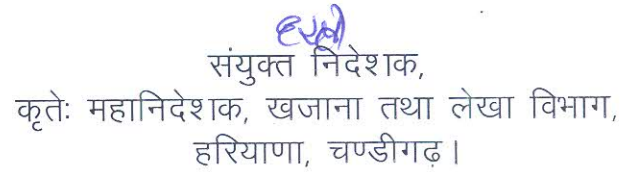 संयुक्त निदेशक,
कृतेः महानिदेशक, खजाना तथा लेखा विभाग,
हरियाणा, चण्डीगढ़।